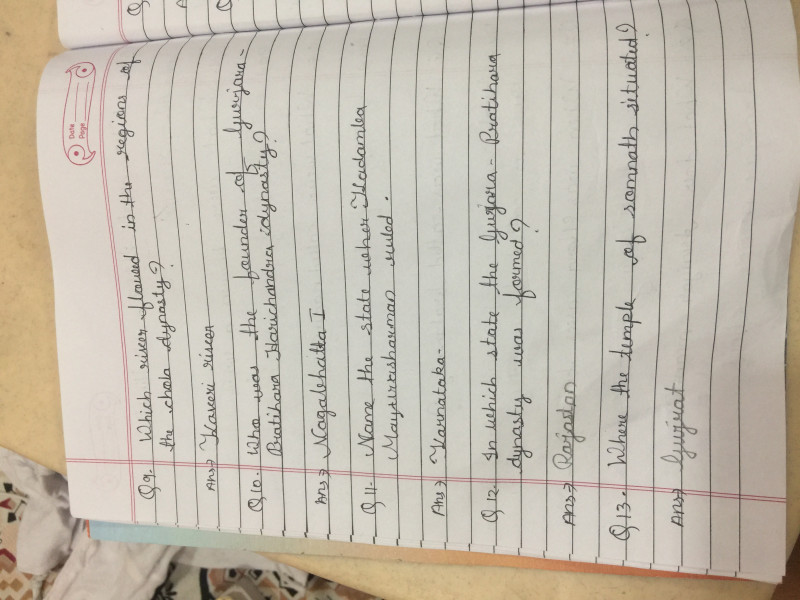 Date
Page
Q9. Which river flowed in the regions of
the chola dynasty?
Ans→ Kaveri river
Q10. Who was the founder of Gurjara-
Pratihara Harichandra dynasty?
Ans→ Nagabhatta I
Q11- Name the state wher Kadamba
Mayurasharman ruled.
Ans→ Karnataka-
Q12- In which state the Gurjara-Pratihara
dynasty was formed?
Ans→ Rajastan
Q13. Where the temple of somnath situated?
Ans→ Gurjuat